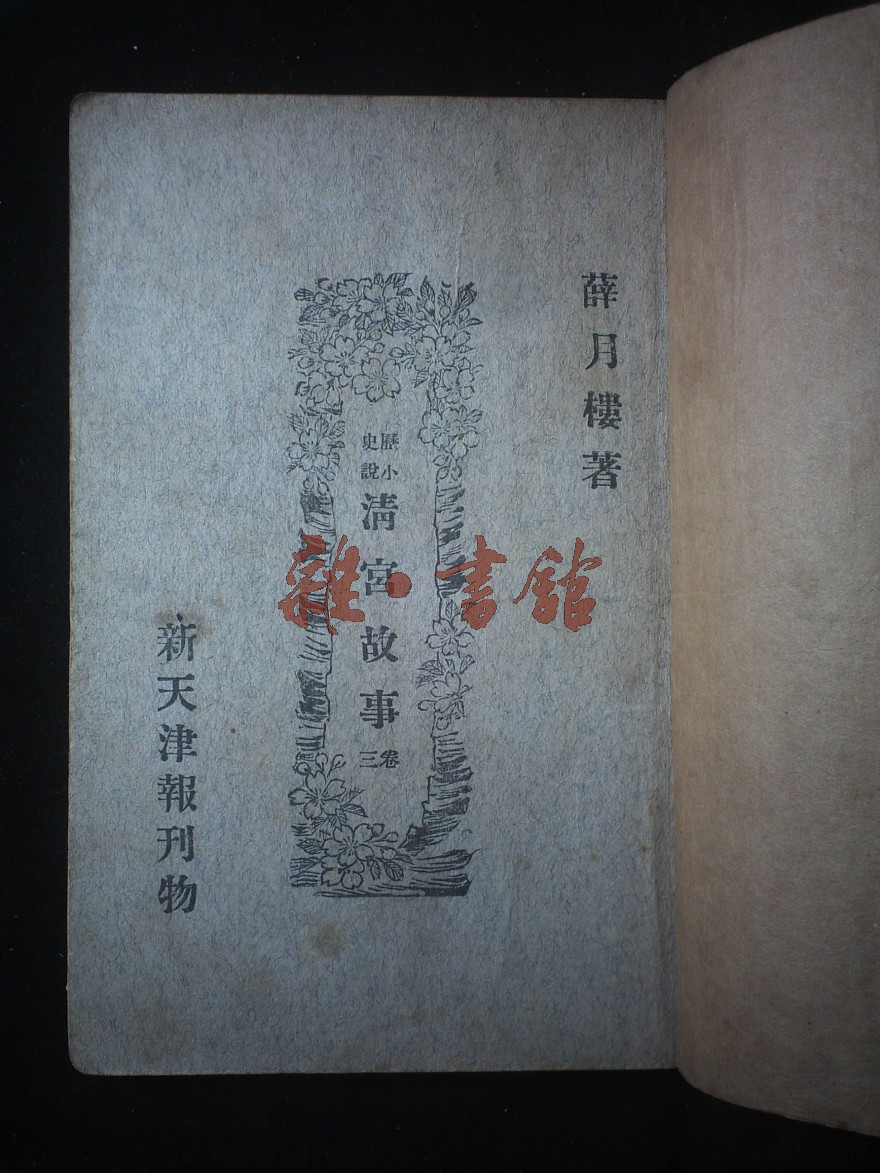 薛月樓著
歷史小說
清宮故事
卷三
新天津報刊物
雜·書館